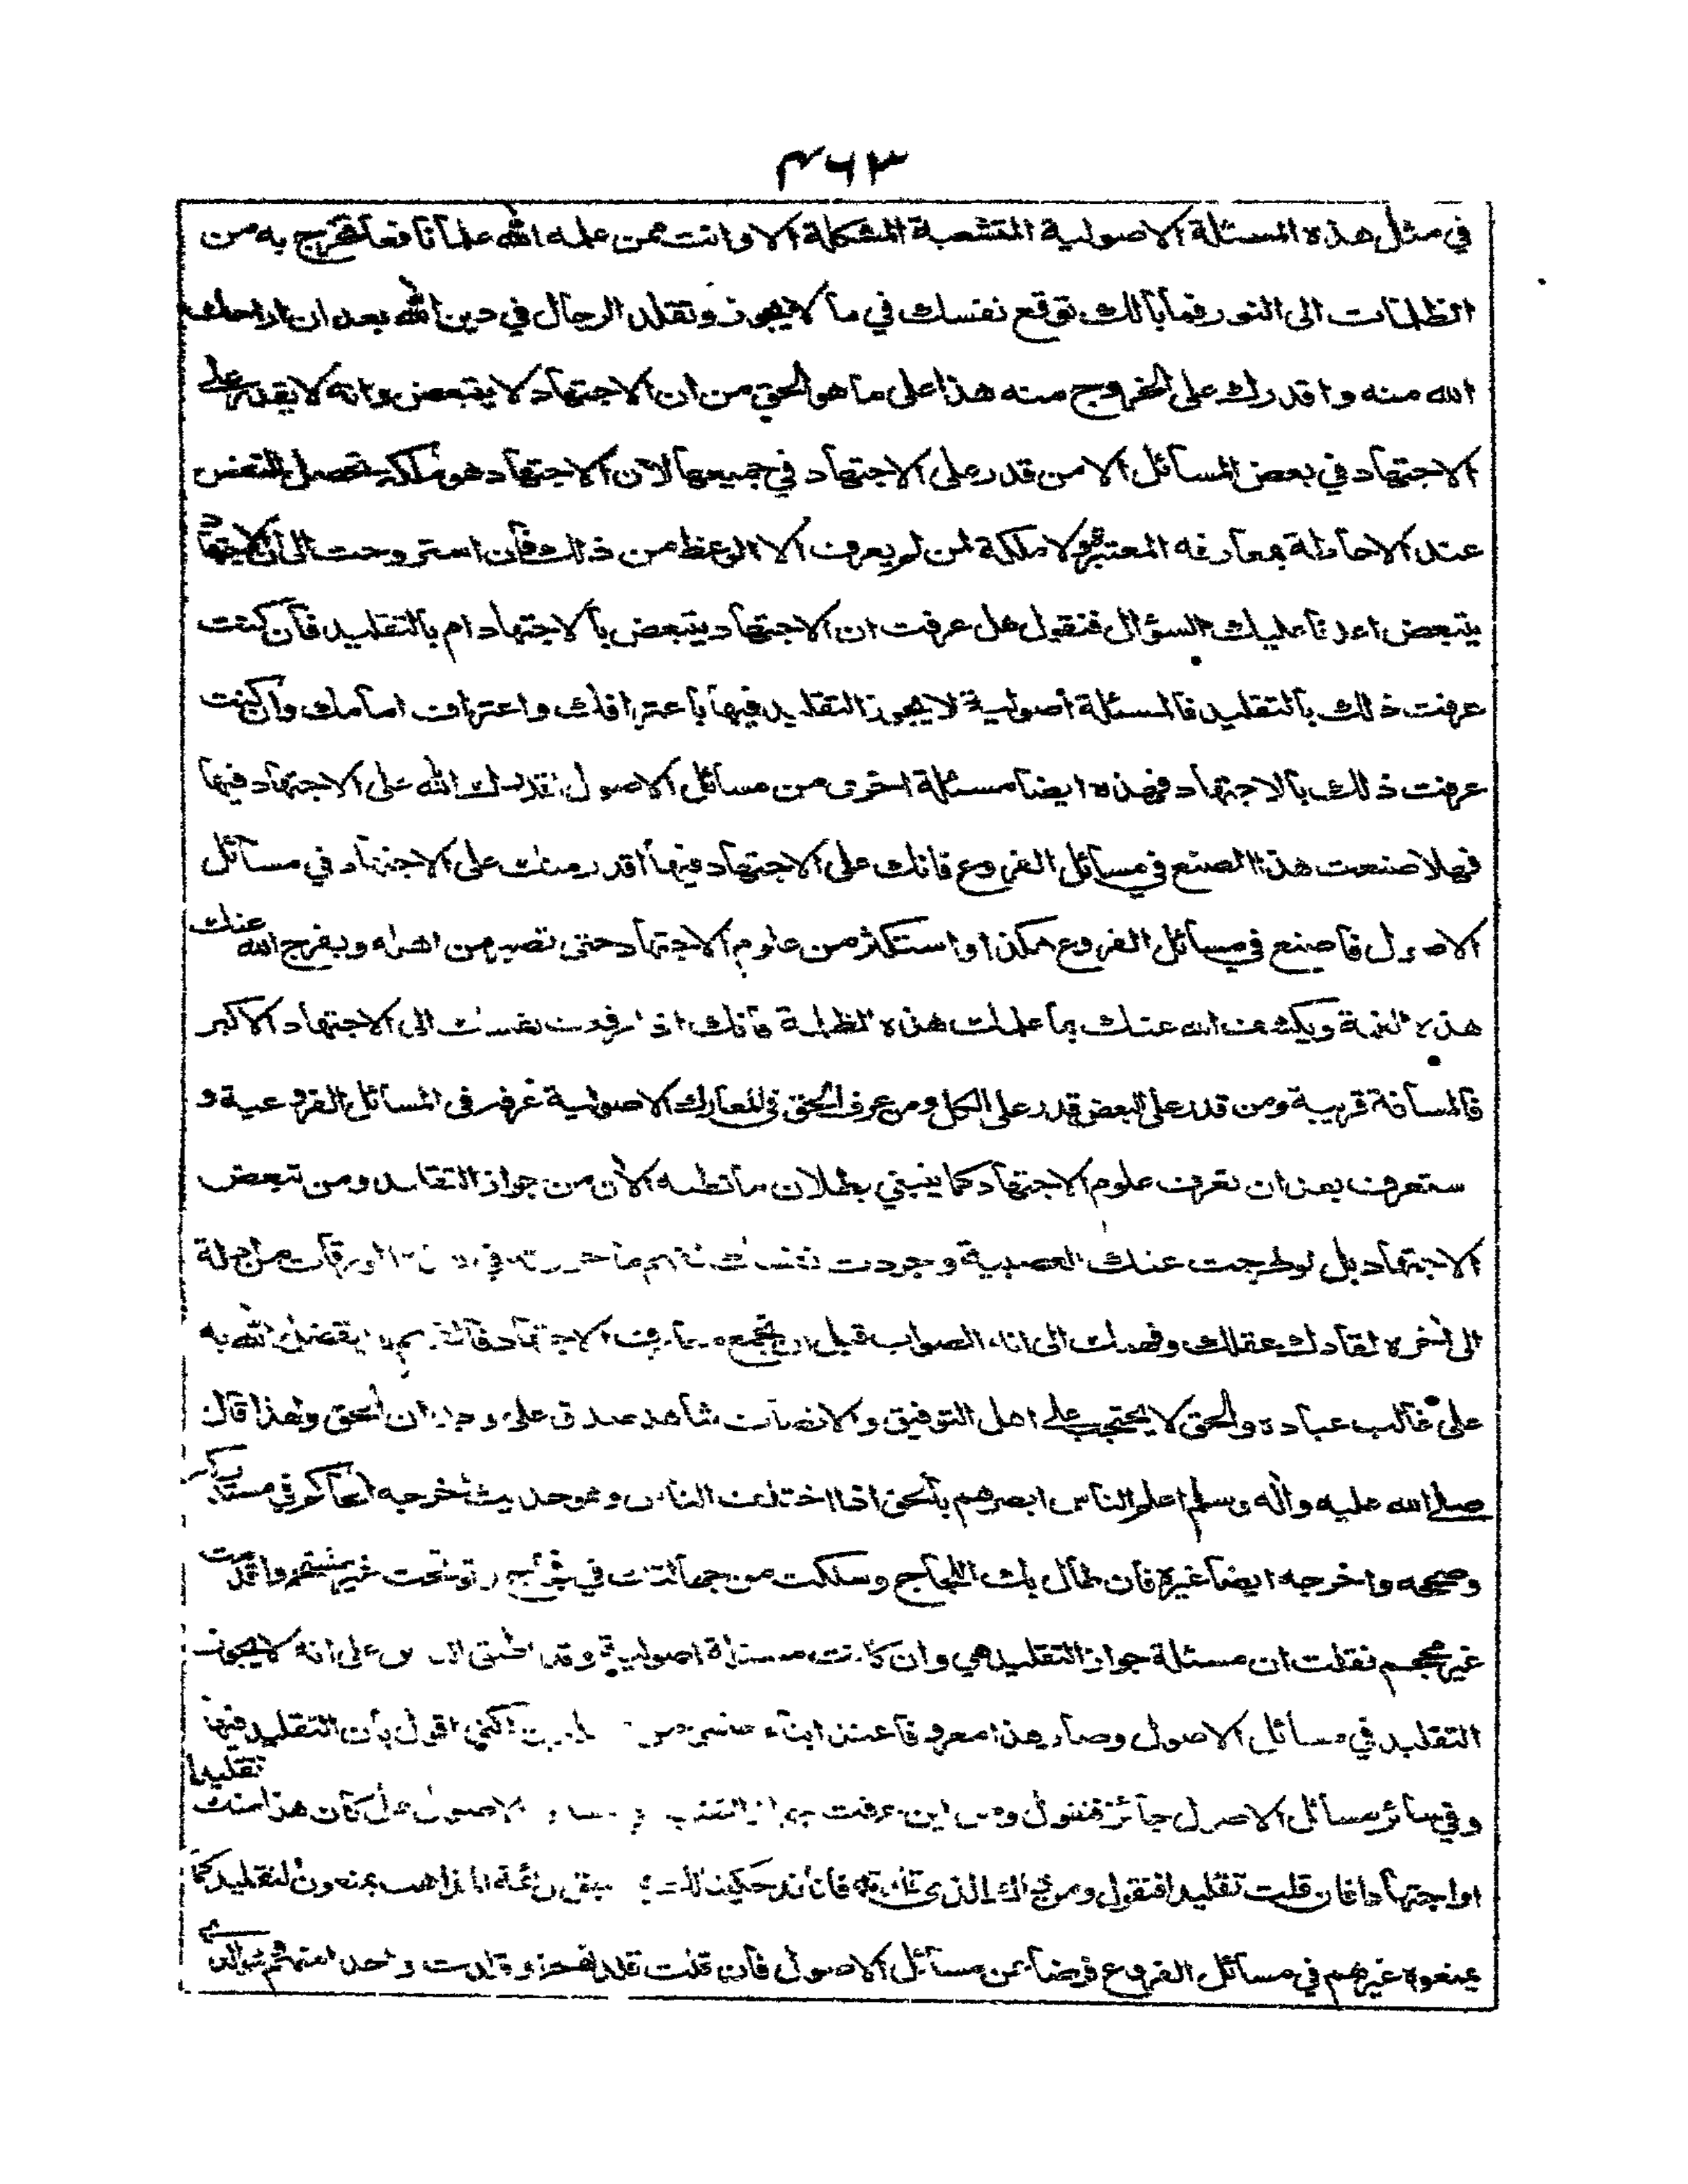 ٤٦٣
في مثل هذه المسئلة الاصولية المتشعبة المشكلة الا وانت ممن علمه الله علما نافعا تخرج به من
الظلمات الى النور فما بالك توقع نفسك في ما لا يجوز وتقلد الرجال في دين الله بعد ان اراحك
الله منه واقدرك على الخروج منه هذا على ما هو الحق من ان الاجتهاد لا يتبعض وانه لا يقدر على
الاجتهاد في بعض المسائل الا من قدر على الاجتهاد في جميعها لان الاجتهاد هو ملكة تحصل للنفس
عند الاحاطة بمعارفه المعتبرة ولا ملكة لمن لم يعرف الا البعض من ذلك فان استروحت الى ان الاجتهاد
يتبعض اعدنا عليك السؤال فنقول هل عرفت ان الاجتهاد يتبعض بالاجتهاد ام بالتقليد فان كنت
عرفت ذلك بالتقليد فالمسئلة أصولية لا يجوز التقليد فيها باعترافك واعتراف امامك وان كنت
عرفت ذلك بالاجتهاد فهذه ايضا مسئلة اخرى من مسائل الاصول اقدرك الله على الاجتهاد فيها
فهلا صنعت هذا الصنع في مسائل الفروع فانك على الاجتهاد فيها اقدر منك على الاجتهاد في مسائل
الاصول فاصنع في مسائل الفروع هكذا واستكثر من علوم الاجتهاد حتى تصير من اهله ويفرج الله عنك
هذه الغمة ويكشف الله عنك بما علمك هذه الظلمة فانك اذا رفعت نفسك الى الاجتهاد الاكبر
فالمسافة قريبة ومن قدر على البعض قدر على الكل ومن عرف الحق في المعارك الاصولية عرفه في المسائل الفروعية و
ستعرف بعد ان تعرف علوم الاجتهاد كما ينبغي بطلان ما تظنه الأن من جواز التقليد ومن تبعض
الاجتهاد بل لو طرحت عنك العصبية وجردت نفسك لفهم ما حررته في هذه الورقات من اوله
الى أخره لقادك عقلك وفهمك الى انه الصواب قبل ان تجمع معارف الاجتهاد فالفهم قد تفضل الله به
على غالب عباده والحق لا يحتجب على اهل التوفيق والانصاف شاهد صدق على وجدان الحق ولهذا قال
صلى الله عليه واله وسلم اعلم الناس ابصرهم بالحق اذا اختلف الناس وهو حديث أخرجه الحاكم في مستدركه
وصححه واخرجه ايضا غيره فان طال بك اللجاج وسلكت من جهالتك في فجاج وتوقحت غير محتشم واقدمت
غير محجم فقلت ان مسئلة جواز التقليد هي وان كانت مسئلة اصولية وقد اطبق الناس على انه لا يجوز
التقليد في مسائل الاصول وصار هذا معروفا عند ابناء لكني اقول بان التقليد فيها
وفي سائر مسائل الاصول جائز فنقول ومن اين عرفت جواز التقليد في مسائل الاصول هل كان هذا منك تقليدا
او اجتهادا فان قلت تقليدا فنقول ومن ذلك الذي قلدته فانا قد حكينا لك ائمة المذاهب يمنعون التقليد كما
يمنعونه غيرهم في مسائل الفروع فضلا عن مسائل الاصول فان قلت قلدتهم او قلدت واحدا منهم